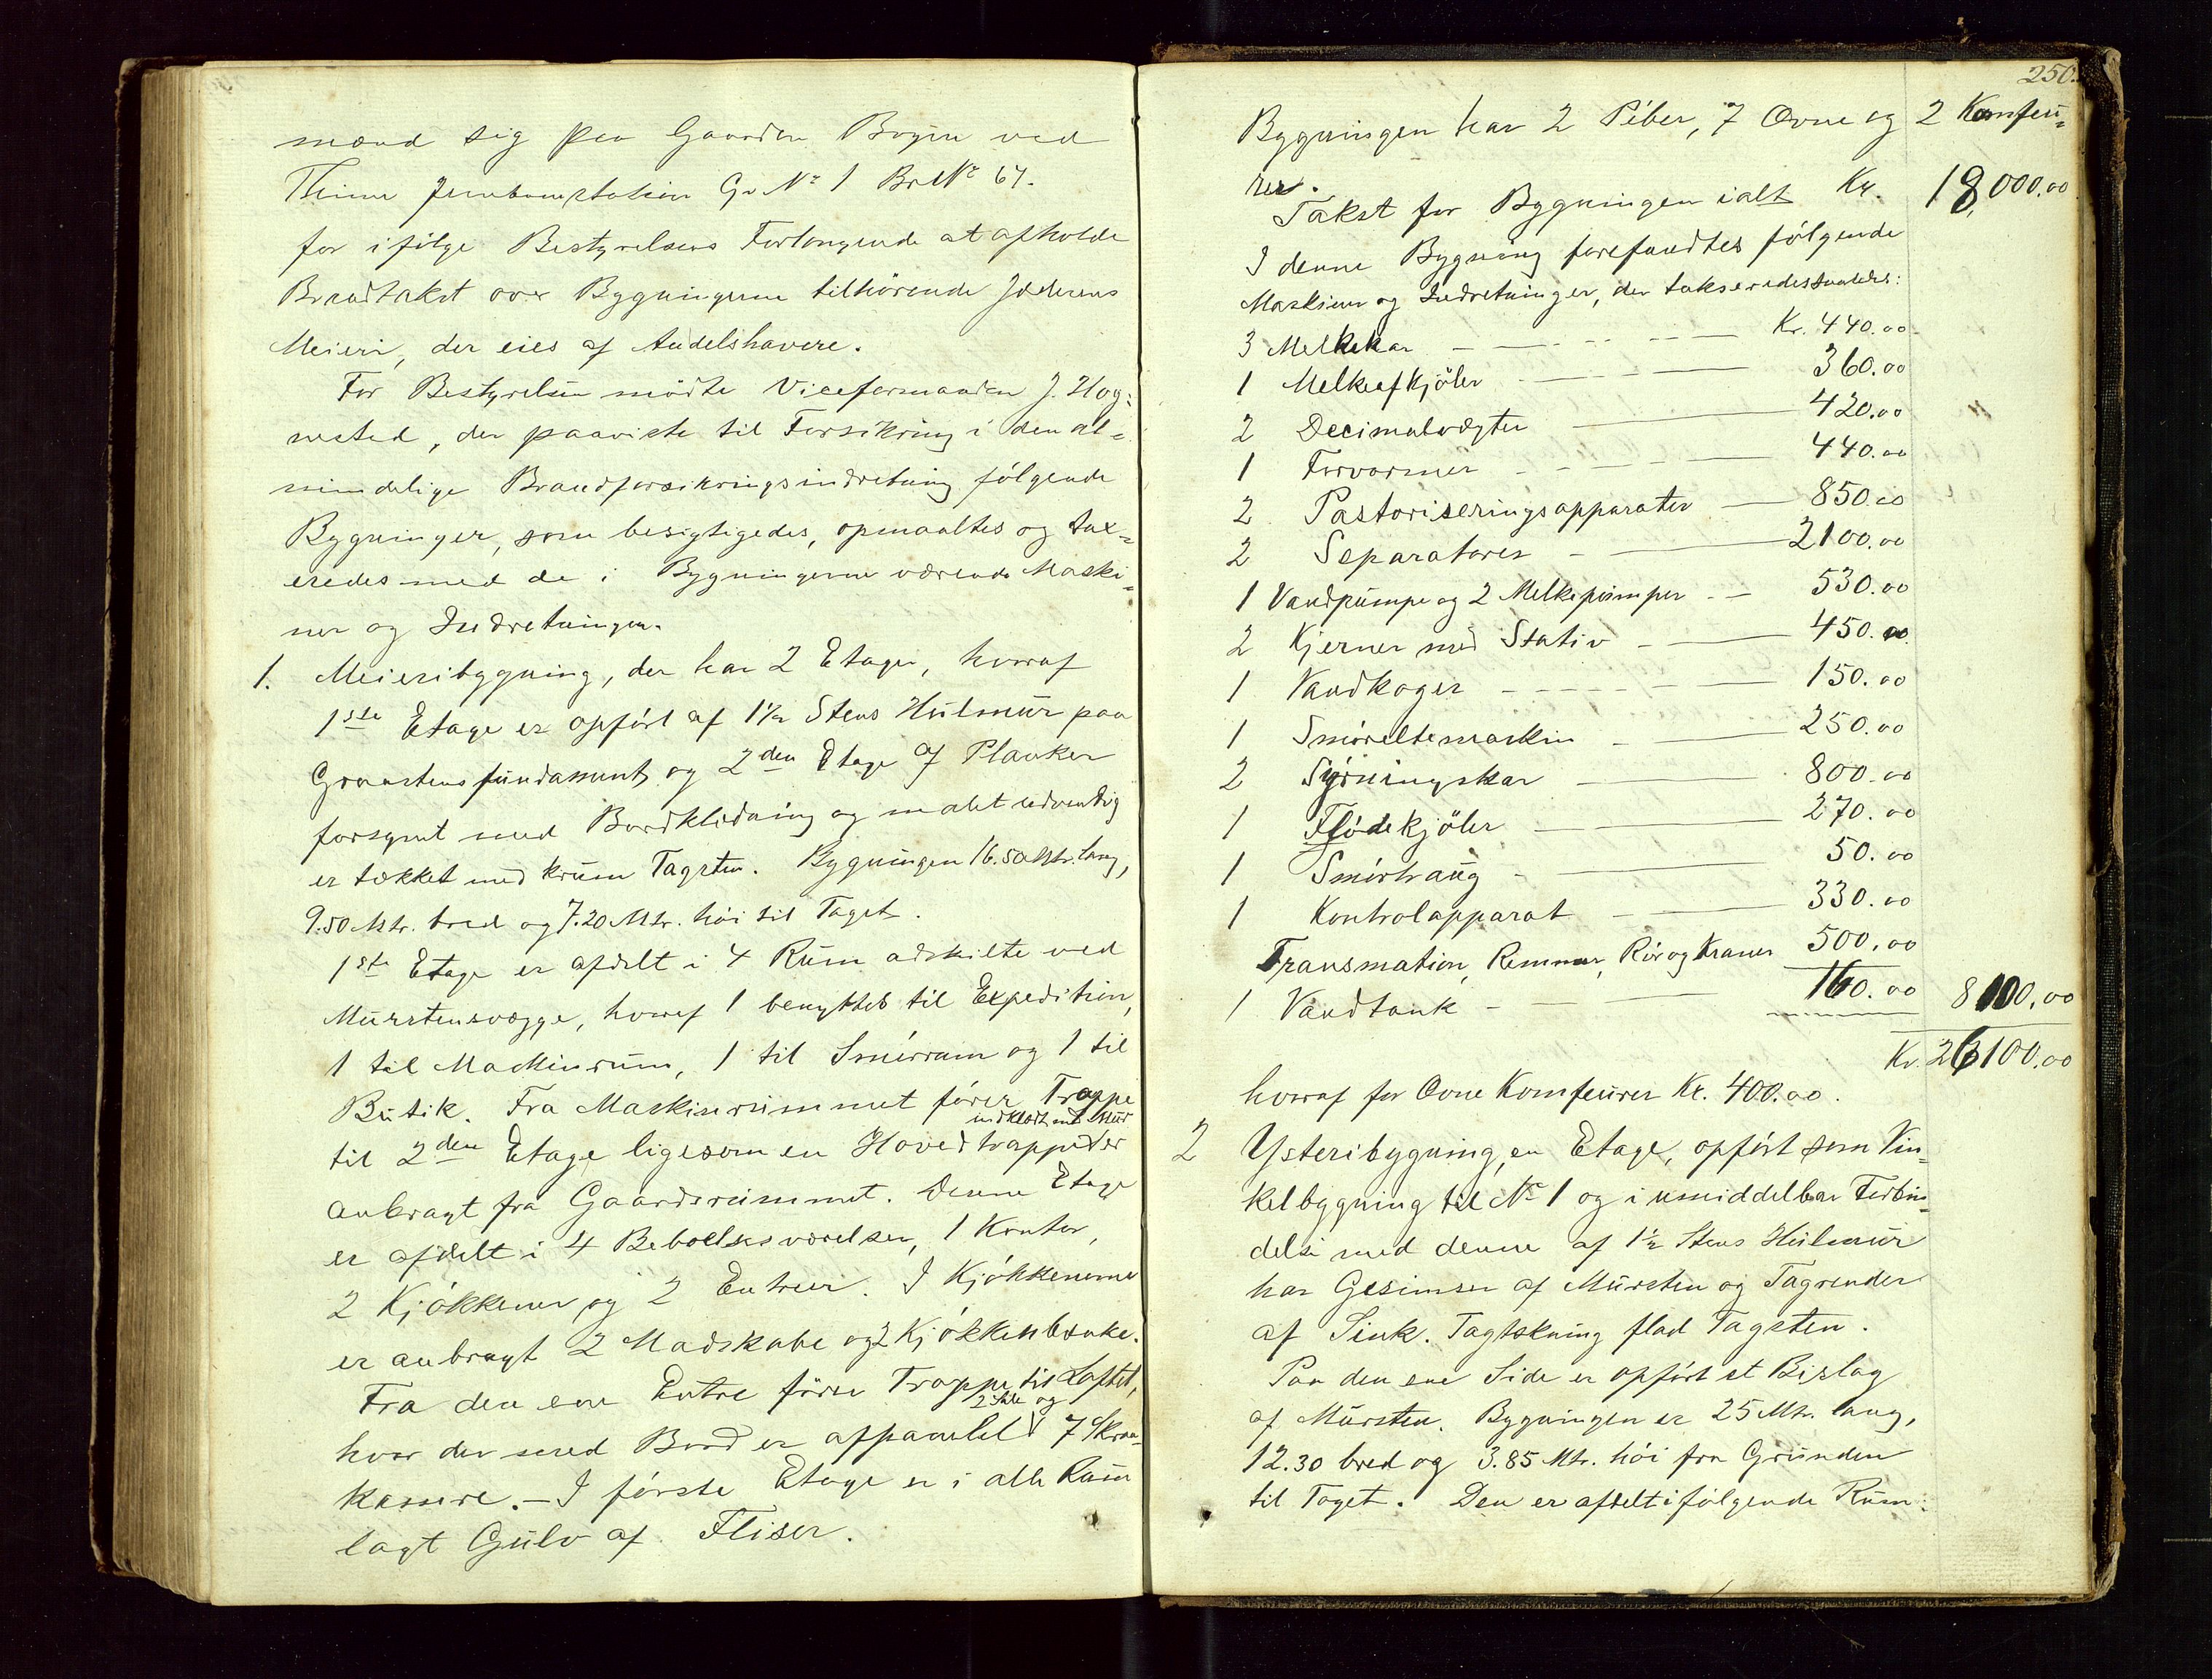 mænd sig paa Gaarden Bryne ved
Thime Jernbanestation G. No 1 Br. No 67.
for ifølge Bestyrelsens Forlangende at afholde
Brandtakst over Bygningerne tilhörende Jæderens
Meieri, der eies af Andelshavere.
For Bestyrelsen mödte Viceformanden J. Hog-
nested, der paaviste til Forsikring i den al-
mindelige Brandforsikringsindretning fólgende
Bygninger, som besigtigedes, opmaaltes og tax-
eredes med de i Bygningerne værende Maski-
ner og Indretninger.
1. Meieribygning, der har 2 Etager, hvoraf
1ste Etage er opfört af 1½ Stens Hulmur paa
Graastensfundament og 2den Etage af Planker
forsynt med Bordklædning og malet udvendig
er tækket med krum Tagsten. Bygningen 16.50 Mtr. lang,
9.50 Mtr. bred og 7.20 Mtr. höi til Taget.
1ste Etage er afdelt i 4 Rum adskilte ved
Murstensvægge, hvoraf 1 benyttes til Expedition,
1 til Maskinrum, 1 til Smörrum og 1 til
Butik. Fra Maskinrummet fører Trappe
indklædt med Mur
til 2den Etage ligesom en Hovedtrappe der
anbragt fra Gaardsrummet. Denne Etage
er afdelt i 4 Beboelsesværelser, 1 Kontor,
2 Kjökkener og 2 Entreer. I Kjökkenerne
er anbragt 2 Madskabe og 2 Kjökkenbænke.
Fra den ene Entre förer Trappe til Loftet,
2 og
hvor der med Bord er afpanelet 7
kamre. – I förste Etage er i alle Rum
lagt Gulv af Fliser.
250.
Bygningen har 2 Piber, 7 Ovne og 2 Komfeu-
rer.
Takst for Bygningen ialt Kr. 18,000.00
I denne Bygning forefandtes fölgende
Maskiner og Indretninger, der takseredes saaledes:
3 Melkekar Kr. 440.00
1 Melkeafkjöler 360.00
2 Decimalvægter 420.00
1 Forvarmer 440.00
2 Pastoriseringsapparater 850.00
2 Separatorer 2100.00
1 Vandpumpe og 2 Melkepumper 530.00
2 Kjerner med Stativ 450.00
1 Vandkoger 150.00
1 Smöreltemaskin 250.00
2 Syrningskar 800.00
1 Flödekjöler 270.00
1 Smörtraug 50.00
1 Kontrolapparat 330.00
Transmation, Remmer, Rör og Kraner 500.00
1 Vandtank 160.00 8100.00
Kr. 26100.00
hvoraf for Ovne Komfeurer Kr. 400.00.
2 Ysteribygning, en Etage, opfört som Vin-
kelbygning til No 1 og i umiddelbar Forbin-
delse med denne af 1½ Stens Hulmur
har Gesimser af Mursten og Tagrender
af Sink. Tagtækning flad Tagsten.
Paa den ene Side er opfört et Bislag
af Mursten. Bygningen er 25 Mtr. lang,
12.30 bred og 3.85 Mtr. höi fra Grunden
til Taget. Den er afdelt i fölgende Rum: